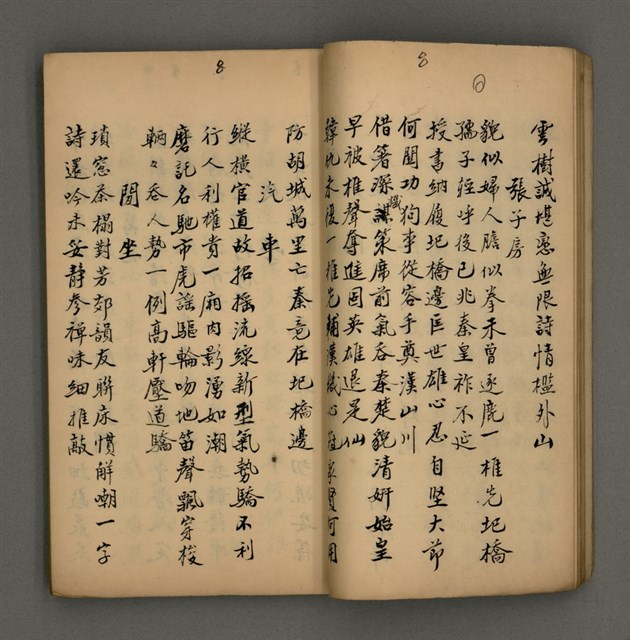 8
雲樹誠堪意無限詩情檻外山
張子房
貌似婦人膽似拳未曾逐鹿一椎先圯橋
孺子經呼後已兆秦皇祚不延
授書納履圯橋邊巨世雄心忍自堅大節
何關功狗事從容手奠漢山川
借箸深謀策席前氣吞秦楚貌清妍始皇
早被椎聲奪進固英雄退是仙
韓
8
防胡城萬里亡秦竟在圯橋邊
汽車
縱橫官道故招搖流線新型氣勢驕不利
行人利權貴一廂肉影湧如潮
磨記名馳市虎謠驅輪吻地笛聲飄穿梭
輛々吞人勢一例高軒壓道驕
閒坐
瑣窓茶榻對芳郊韻友聯床慣解嘲一字
詩還吟未妥静參禪味細推敲